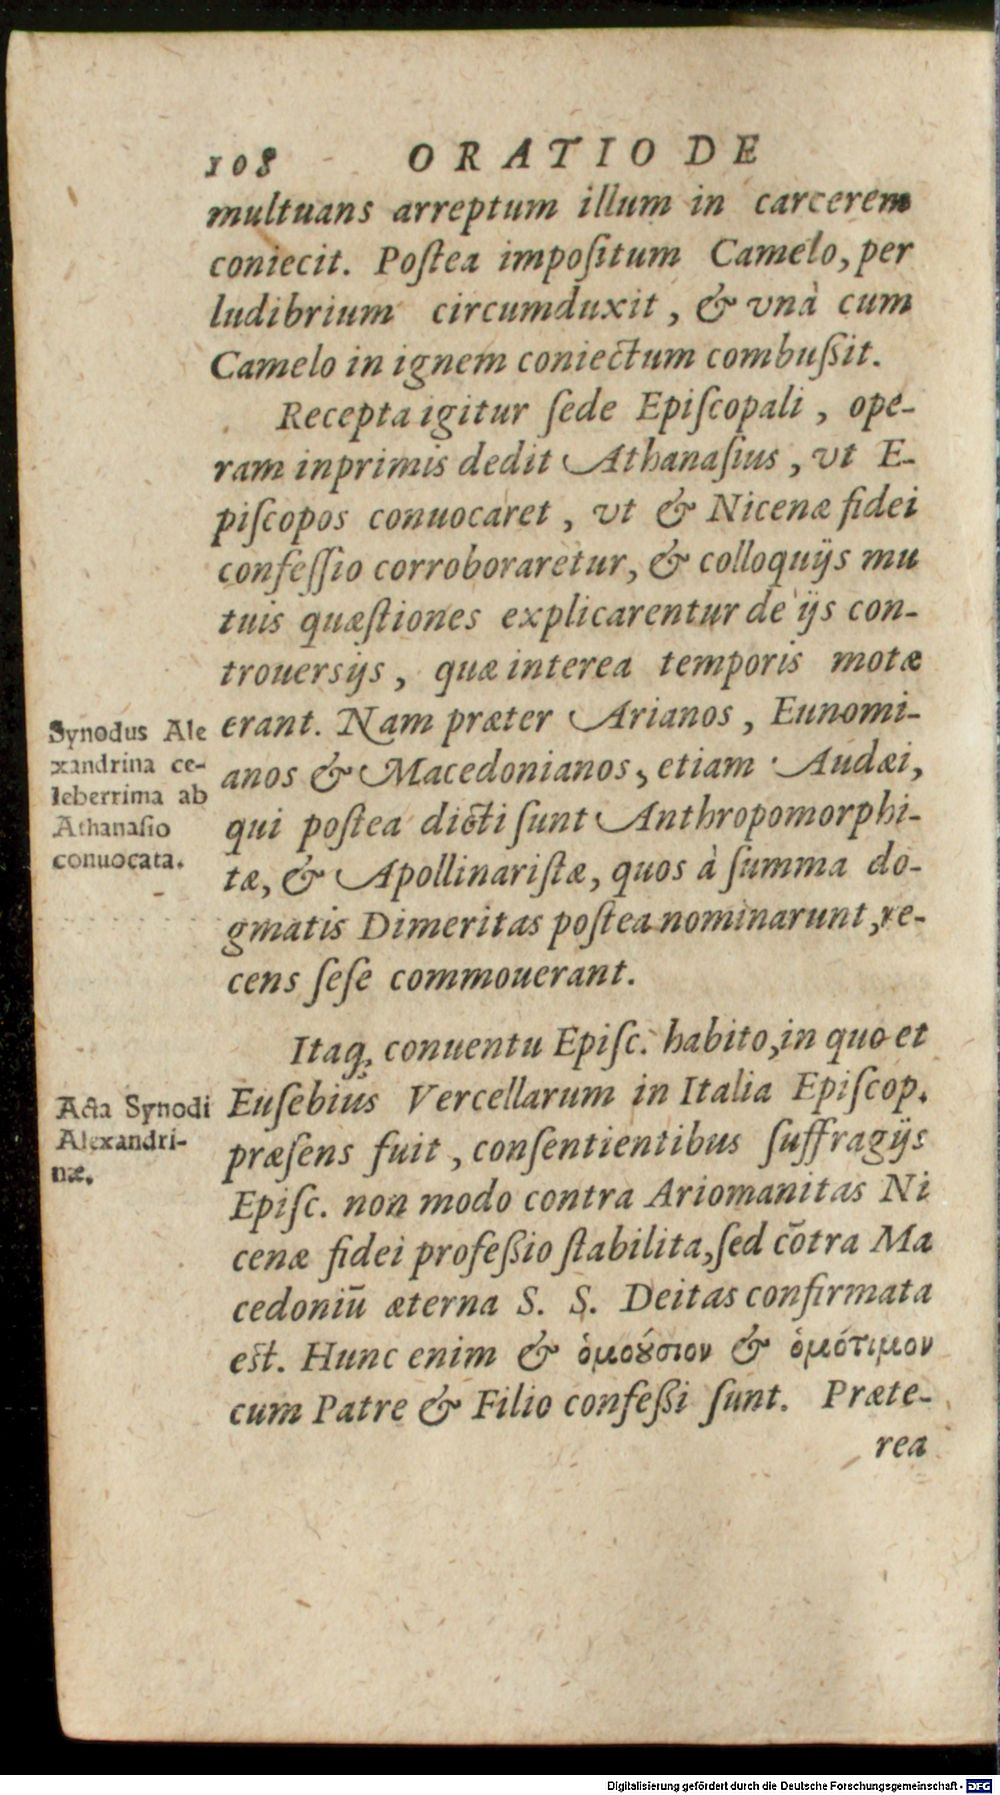 108 ORATIO DE
multuans arreptum illum in carcerem
coniecit. Poſtea impoſitum Camelo, per
ludibrium circumduxit, & vnà cum
Camelo in ignem coniectum combuſsit.
Recepta igitur ſede Epiſcopali, ope-
ram inprimis dedit Athanaſius, vt E-
piſcopos conuocaret, vt & Nicenæ fidei
confeſſio corroboraretur, & colloquijs mu
tuis quæſtiones explicarentur de ijs con-
trouersijs, quæ interea temporis motæ
erant. Nam præter Arianos, Eunomi-
anos & Macedonianos, etiam Audæi,
qui poſtea dicti ſunt Anthropomorphi-
tæ, & Apollinariſtæ, quos à ſumma do-
gmatis Dimeritas poſtea nominarunt, re-
cens ſeſe commouerant.
Synodus Ale
xandrina ce-
leberrima ab
Athanaſio
conuocata.
Itaq; conuentu Epiſc. habito, in quo et
Euſebius Vercellarum in Italia Epiſcop.
præſens fuit, conſentientibus ſuffragijs
Epiſc. non modo contra Ariomanitas Ni
cenæ fidei profeſsio ſtabilita, ſed cōtra Ma
cedoniū æterna S. S. Deitas confirmata
eſt. Hunc enim & ὁμοȣ́σιον & ὁμότιμον
cum Patre & Filio confeſsi ſunt. Præte-
rea
Acta Synodi
Alexandri-
næ.
Digitalisierung gefördert durch die Deutsche Forschungsgemeinschaft - DFG